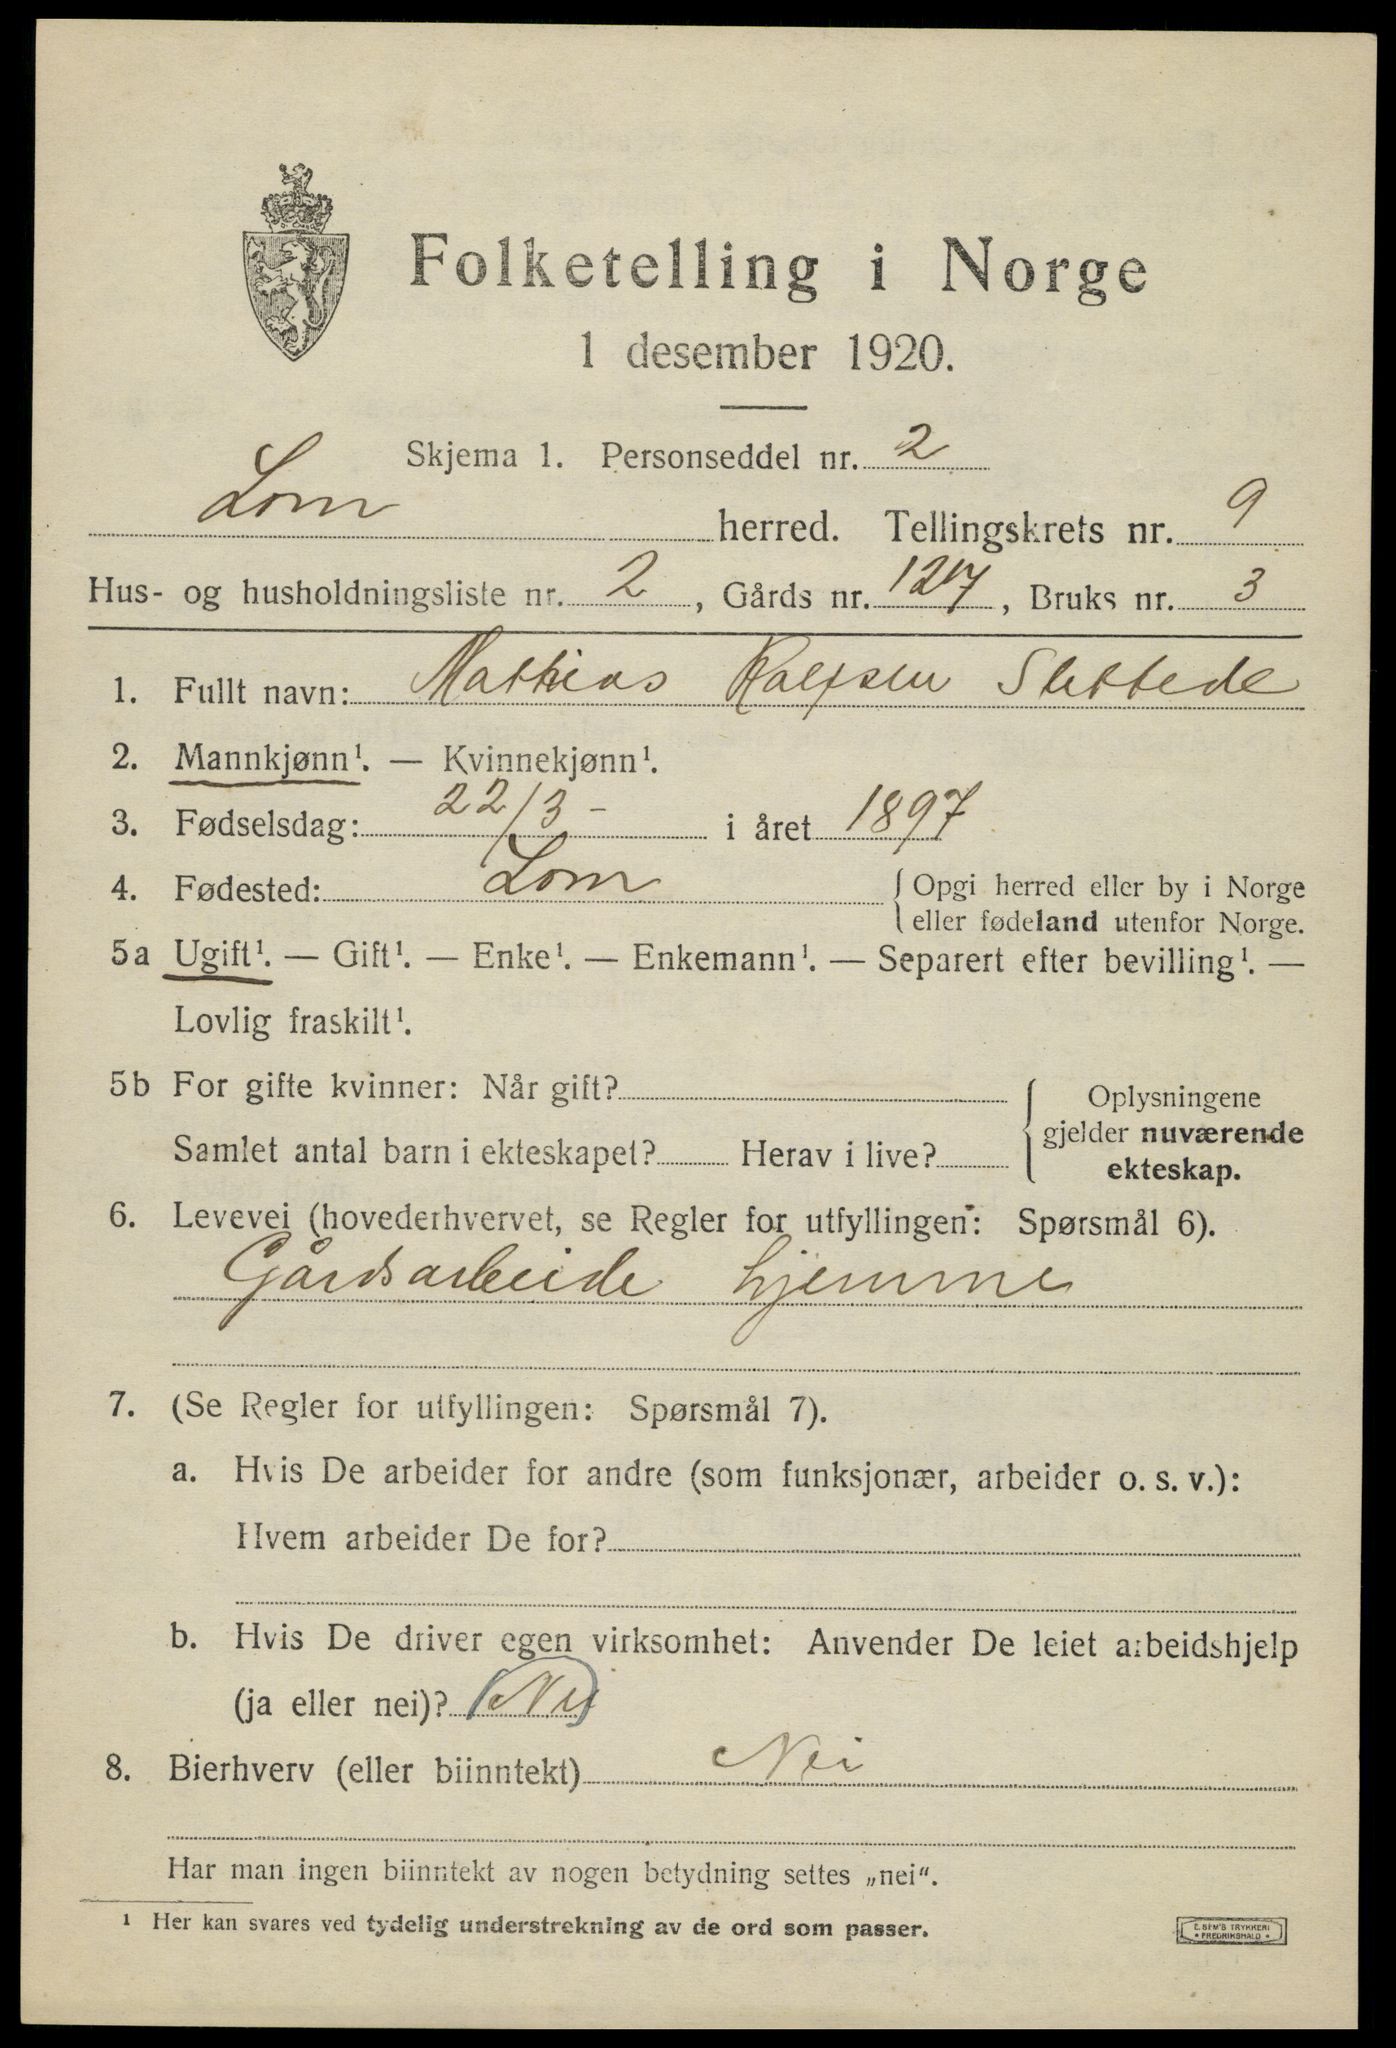 Folketelling i Norge
1 desember 1920.
Skjema 1. Personseddel nr. 2
Lom herred. Tellingskrets nr. 9
Hus- og husholdningsliste nr. 2, Gårds nr. 127, Bruks nr. 3
1. Fullt navn: Mathias Rolfsen Slettede
2. Mannkjønn¹. — Kvinnekjønn¹.
3. Fødselsdag: 22/3 - i året 1897
4. Fødested: Lom { Opgi herred eller by i Norge
eller fødeland utenfor Norge.
5a Ugift¹. — Gift¹. — Enke¹. — Enkemann¹. — Separert efter bevilling¹. —
Lovlig fraskilt¹.
5b For gifte kvinner: Når gift? { Oplysningene
gjelder nuværende
Samlet antal barn i ekteskapet? Herav i live?
ekteskap.
6. Levevei (hovederhvervet, se Regler for utfyllingen: Spørsmål 6).
Gårdsarbeide hjemme
7. (Se Regler for utfyllingen: Spørsmål 7).
a. Hvis De arbeider for andre (som funksjonær, arbeider o. s. v.):
Hvem arbeider De for?
b. Hvis De driver egen virksomhet: Anvender De leiet arbeidshjelp
(ja eller nei)? (Nei)
8. Bierhverv (eller biinntekt) Nei
Har man ingen biinntekt av nogen betydning settes „nei“.
¹ Her kan svares ved tydelig understrekning av de ord som passer.
E. SEM'S TRYKKERI
• FREDRIKSHALD •